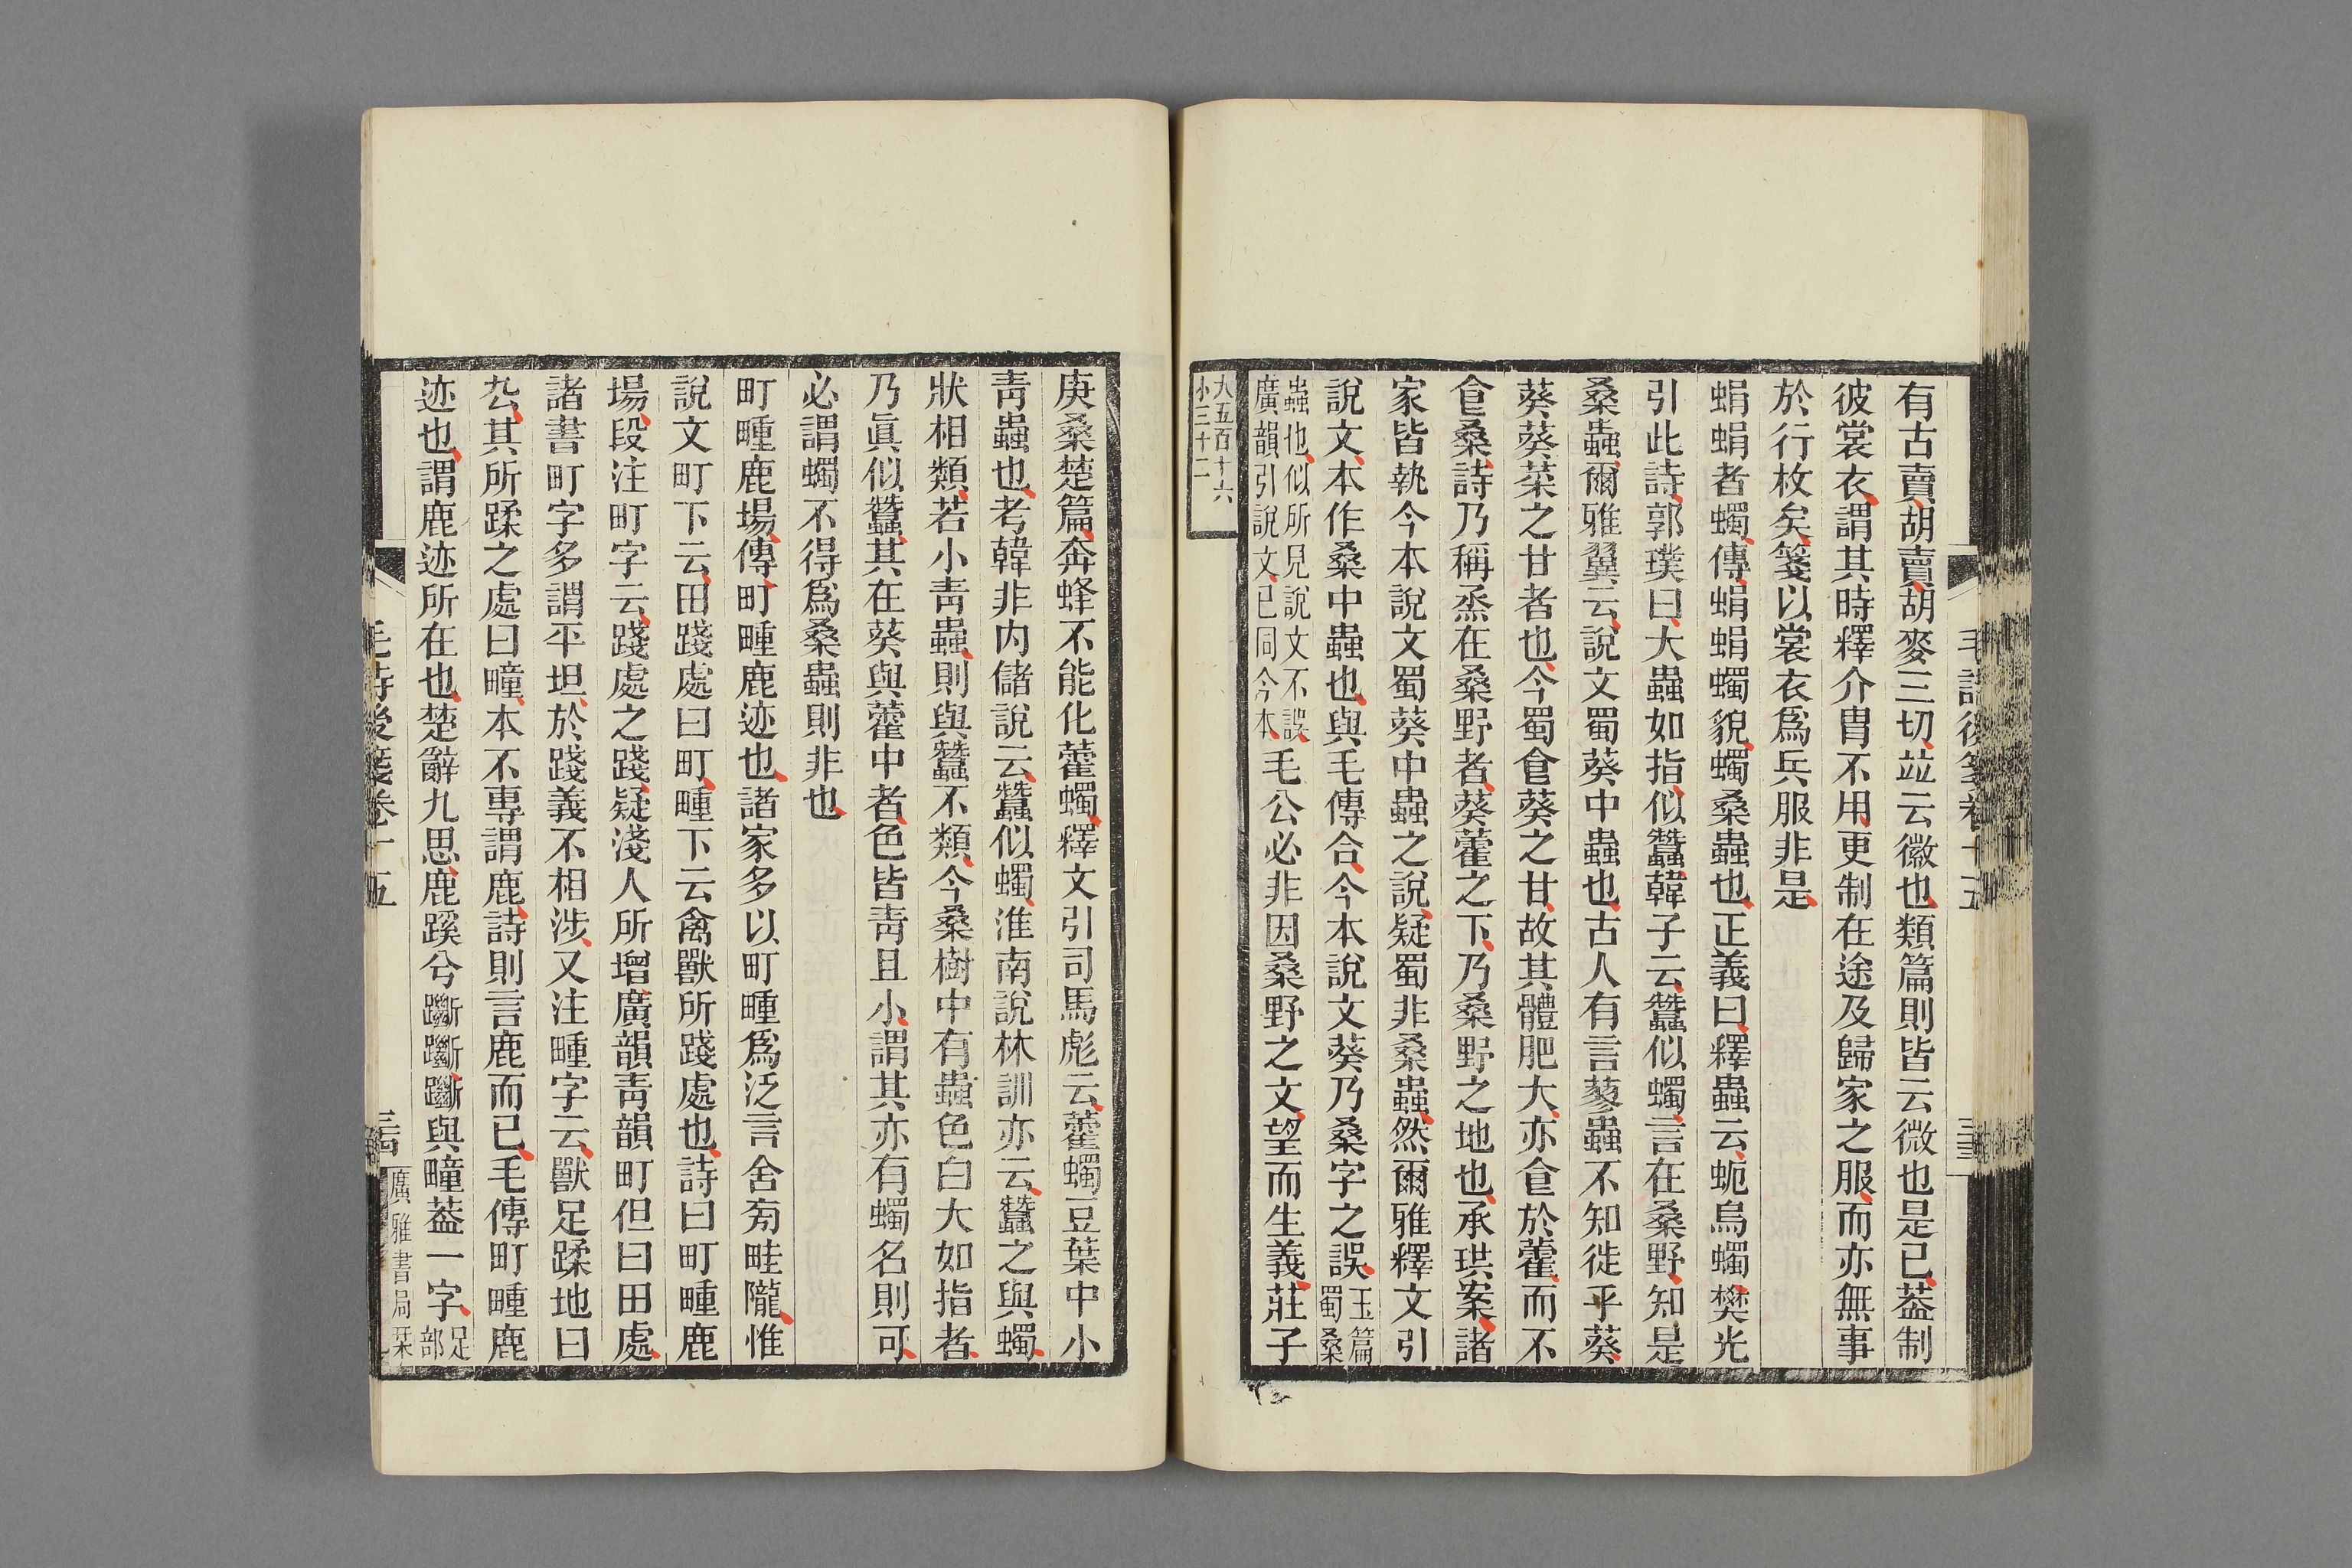 有古賣胡賣胡麥三切竝云徽也類篇則皆云微也是已葢制
彼裳衣謂其時釋介冑不用更制在途及歸家之服而亦無事
於行枚矣箋以裳衣爲兵服非是
蜎蜎者蠋傳蜎蜎蠋貌蠋桑蟲也正義曰釋蟲云蚅烏蠋樊光
引此詩郭璞曰大蟲如指似蠶韓子云蠶似蠋言在桑野知是
桑蟲爾雅翼云說文蜀葵中蟲也古人有言蓼蟲不知徙乎葵
葵葵菜之甘者也今蜀食葵之甘故其體肥大亦食於藿而不
食桑詩乃稱烝在桑野者葵藿之下乃桑野之地也承珙案諸
家皆執今本說文蜀葵中蟲之說疑蜀非桑蟲然爾雅釋文引
說文本作桑中蟲也與毛傳合今本說文葵乃桑字之誤玉篇蜀桑
蟲也似所見說文不誤廣韻引說文已同今本毛公必非因桑野之文望而生義莊子
大五百十六
小三十二
毛詩後箋卷十五
三十三
庚桑楚篇奔蜂不能化藿蠋釋文引司馬彪云藿蠋豆葉中小
靑蟲也考韓非内儲說云蠶似蠋淮南說林訓亦云蠶之與蠋
狀相類若小靑蟲則與蠶不類今桑樹中有蟲色白大如指者
乃眞似蠶其在葵與藿中者色皆靑且小謂其亦有蠋名則可
必謂蠋不得爲桑蟲則非也
町畽鹿場傳町畽鹿迹也諸家多以町畽爲泛言舍㫄畦隴惟
說文町下云田踐處曰町畽下云禽獸所踐處也詩曰町畽鹿
場段注町字云踐處之踐疑淺人所增廣韻靑韻町但曰田處
諸書町字多謂平坦於踐義不相涉又注畽字云獸足蹂地曰
厹其所蹂之處曰疃本不專謂鹿詩則言鹿而已毛傳町畽鹿
迹也謂鹿迹所在也楚辭九思鹿蹊兮𨇾𨇾𨇾與疃葢一字足部
毛詩後箋卷十五
三十四
廣雅書局栞